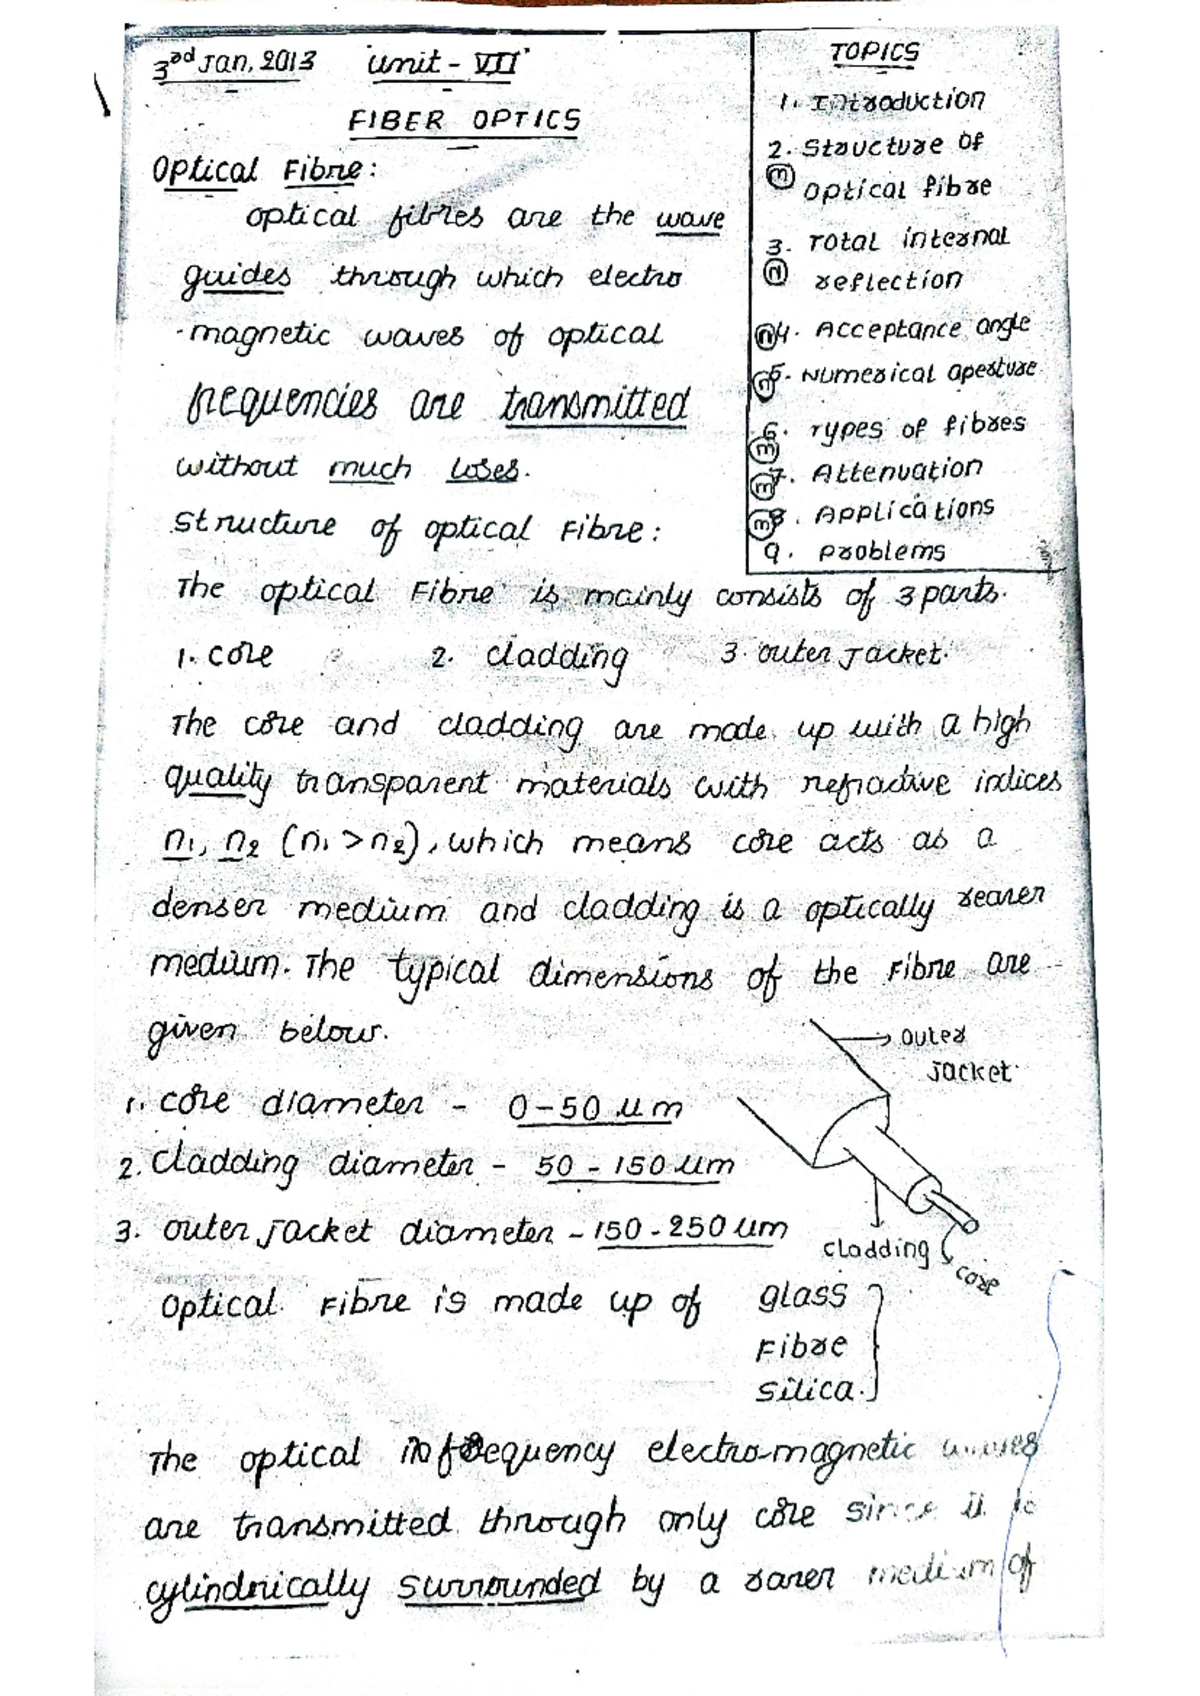 3rd Jan, 2013 Unit - VII
FIBER OPTICS
Optical Fibre:
optical fibres are the wave
guides through which electro
-magnetic waves of optical
frequencies are transmitted
without much loses.
Structure of optical Fibre:
TOPICS
1. Introduction
2. Structure of
optical fibre
3. Total internal
reflection
4. Acceptance angle
5. Numerical aperture
6. Types of fibres
7. Attenuation
8. Applications
9. problems
The optical Fibre is mainly consists of 3 parts.
1. core 2. cladding 3. outer Jacket.
The core and cladding are made up with a high
quality transparent materials with refractive indices
n1, n2 (n1 > n2), which means core acts as a
denser medium and cladding is a optically rearer
medium. The typical dimensions of the Fibre are
given below.
1. core diameter - 0-50 μm
2. cladding diameter - 50 - 150 μm
3. outer jacket diameter - 150 - 250 μm
outer
Jacket
cladding
core
optical Fibre is made up of glass
Fibre
silica.
The optical frequency electro-magnetic waves
are transmitted through only core since it is
cylindrically surrounded by a rarer medium of